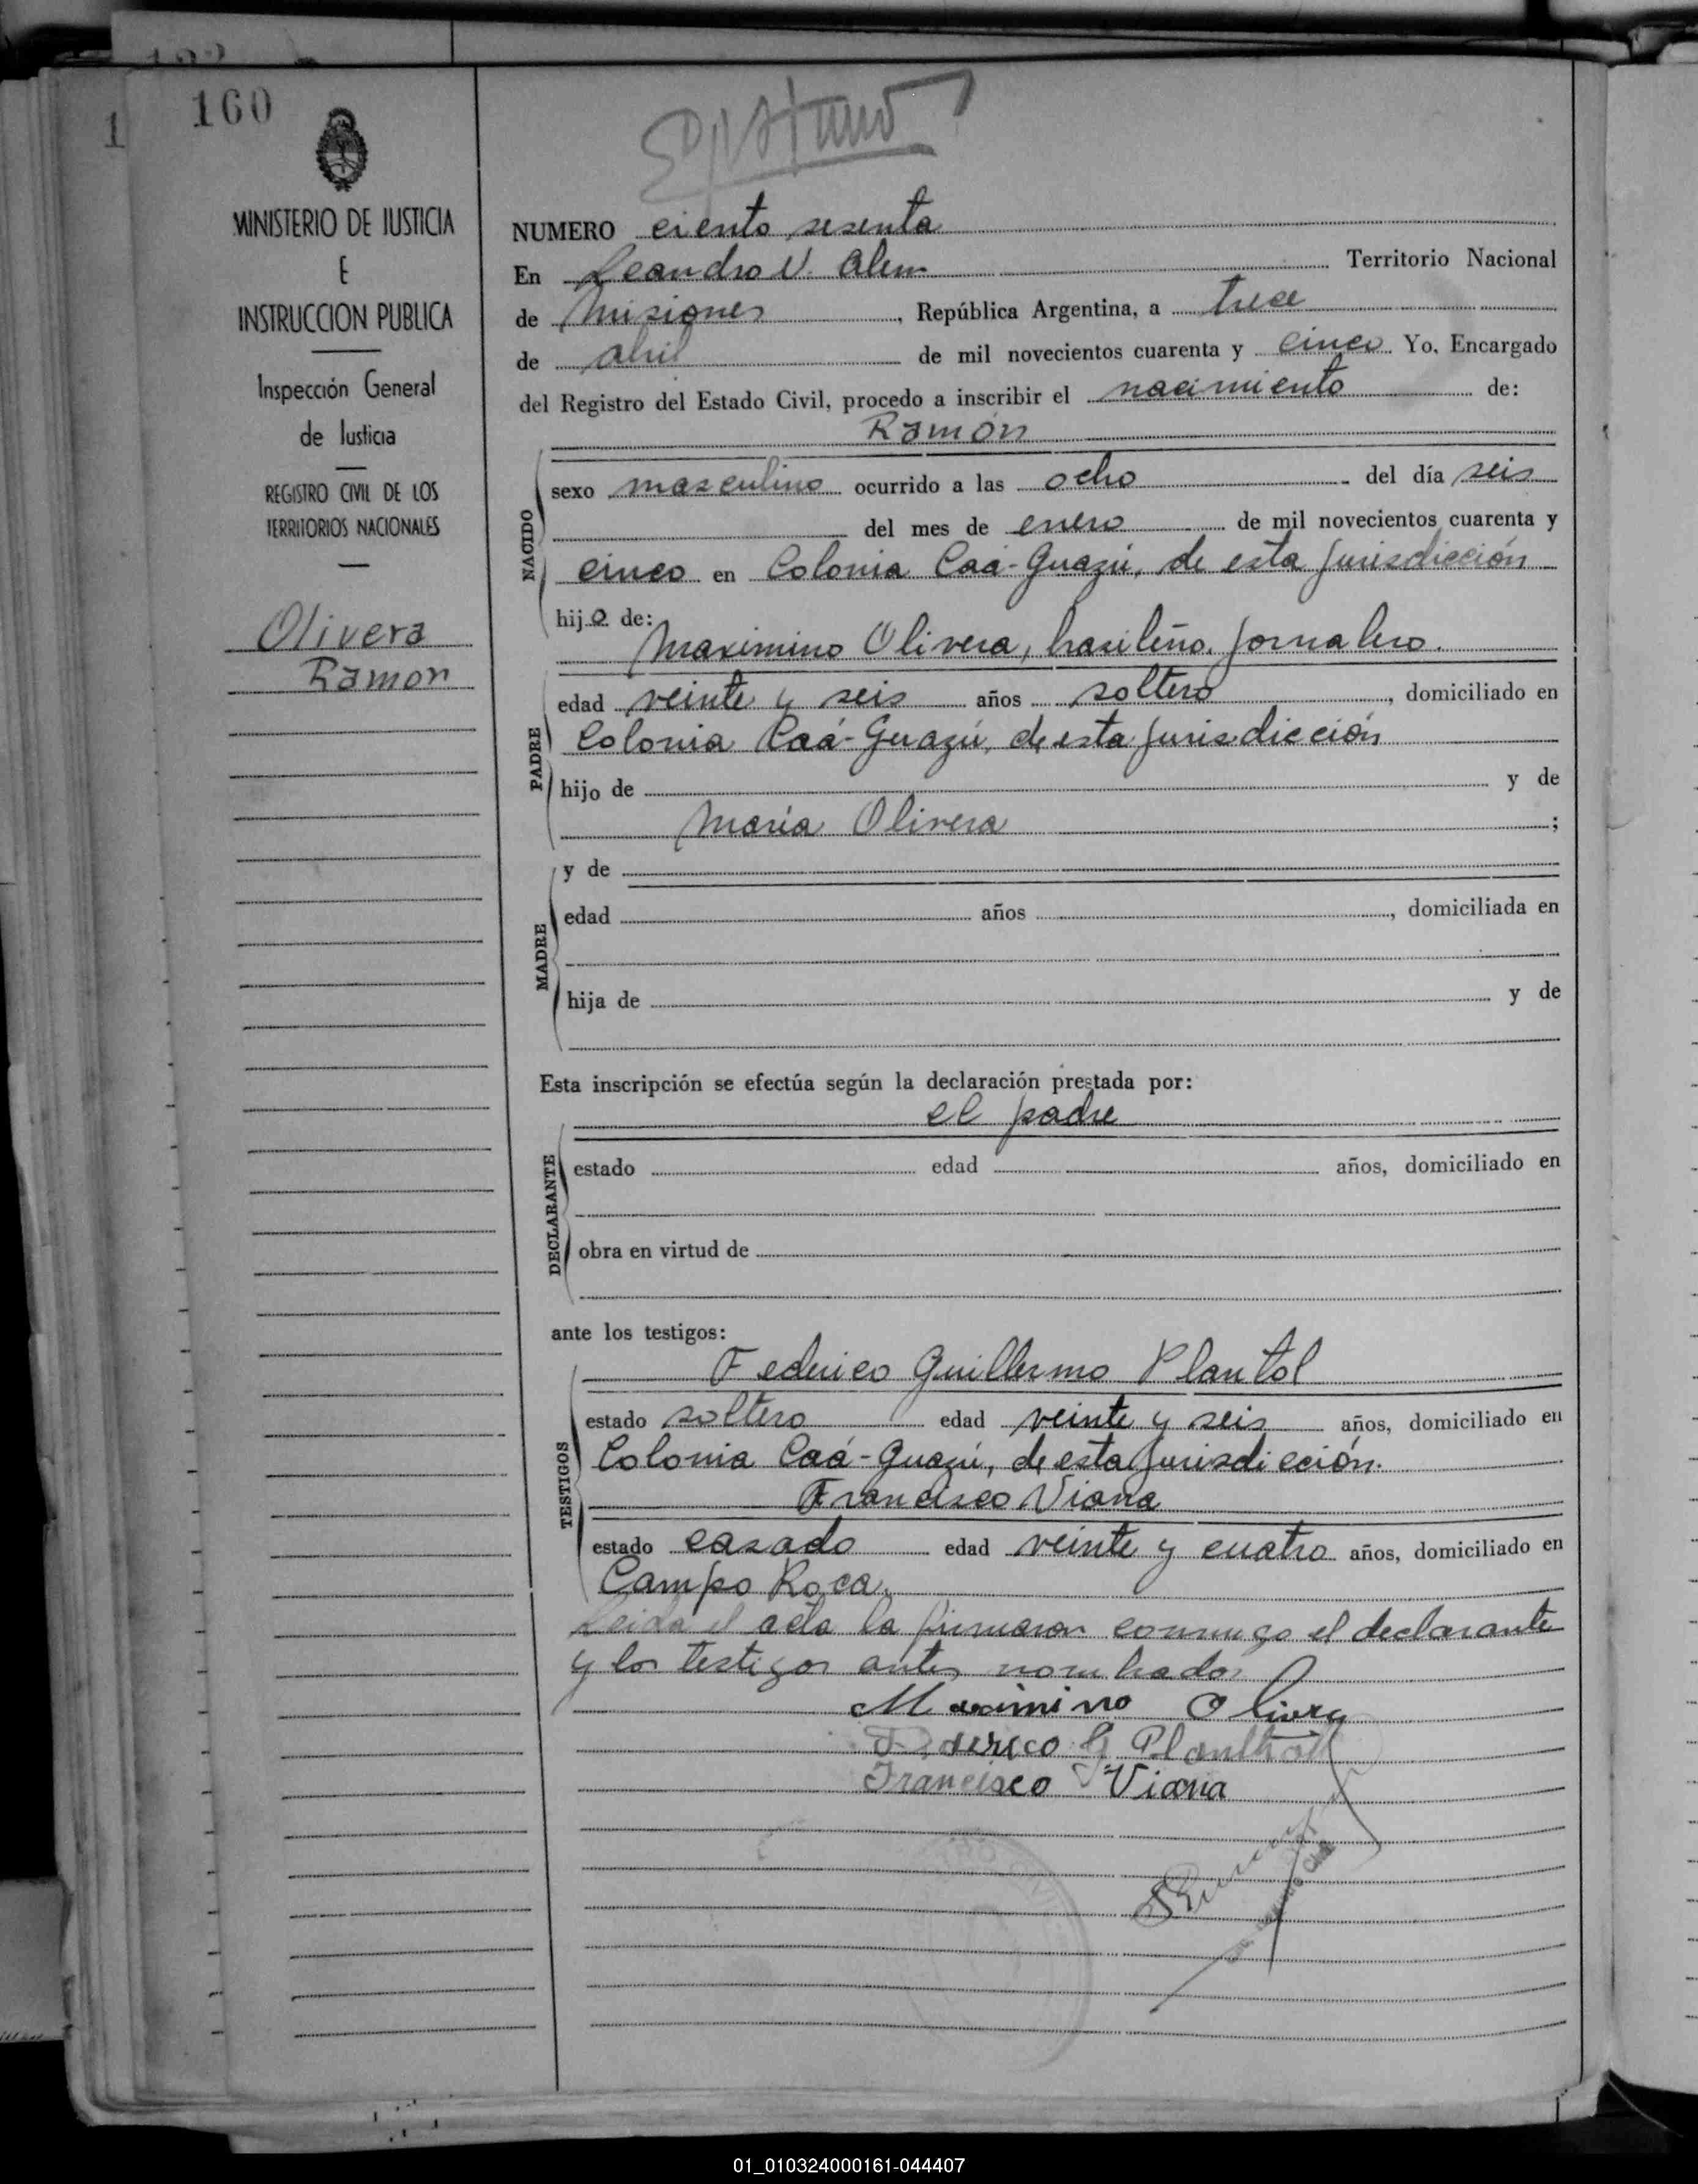 160
MINISTERIO DE JUSTICIA
E
INSTRUCCION PUBLICA
Inspección General
de Justicia
REGISTRO CIVIL DE LOS
TERRITORIOS NACIONALES
Olivera
Ramon
NUMERO ciento sesenta
En Leandro N. Alem Territorio Nacional
de Misiones, República Argentina, a trece
de abril de mil novecientos cuarenta y cinco Yo, Encargado
del Registro del Estado Civil, procedo a inscribir el nacimiento de:
Ramón
NACIDO
sexo masculino ocurrido a las ocho del día seis
del mes de enero de mil novecientos cuarenta y
cinco en Colonia Caá-Guazú, de esta jurisdicción
hijo de:
Maximino Olivera, brasileño, jornalero.
PADRE
edad veinte y seis años soltero, domiciliado en
Colonia Caá-Guazú, de esta jurisdicción
hijo de y de
María Olivera ;
MADRE
y de
edad años , domiciliada en
hija de y de
Esta inscripción se efectúa según la declaración prestada por:
el padre
DECLARANTE
estado edad años, domiciliado en
obra en virtud de
ante los testigos:
Federico Guillermo Plantol
TESTIGOS
estado soltero edad veinte y seis años, domiciliado en
Colonia Caá-Guazú, de esta jurisdicción.
Francisco Viana
estado casado edad veinte y cuatro años, domiciliado en
Campo Roca.
Leida el acta la firmaron conmigo el declarante
y los testigos antes nombrados
Maximino Olivera
Federico G Planthol
Francisco Viana
01_010324000161-044407